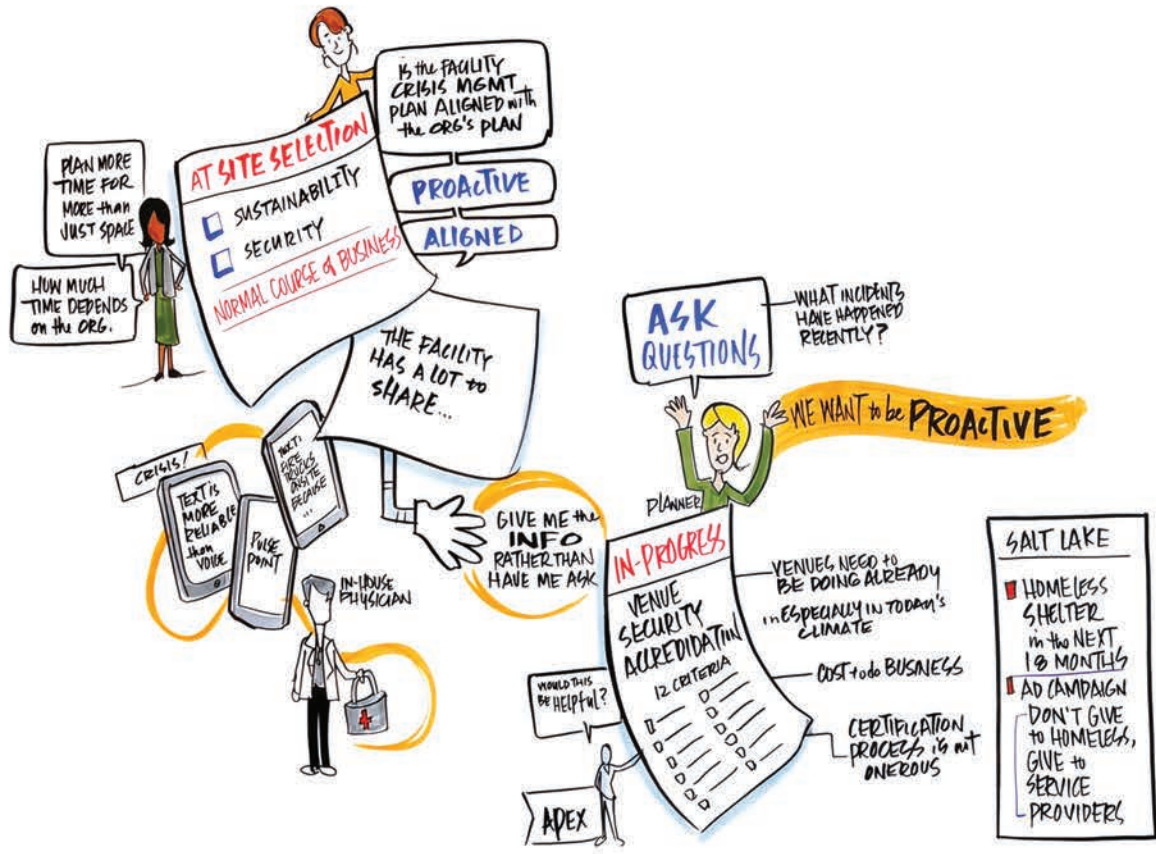 IS the FACILITY
CRISIS MGMT
PLAN ALIGNED with
the ORG'S PLAN
PROACTIVE
ALIGNED
PLAN MORE
TIME FOR
MORE than
JUST SPACE
HOW MUCH
TIME DEPENDS
on the ORG.
AT SITE SELECTION
SUSTAINABILITY
SECURITY
NORMAL COURSE of BUSINESS
THE FACILITY
HAS A LOT to
SHARE...
CRISIS!
TEXT IS
MORE
RELIABLE
than
VOICE
PULSE
POINT
TEXT:
FIRE
TRUCKS
ONSITE
BECAUSE
...
IN-HOUSE
PHYSICIAN
GIVE ME the
INFO
RATHER THAN
HAVE ME ASK
ASK
QUESTIONS
WHAT INCIDENTS
HAVE HAPPENED
RECENTLY?
WE WANT to be PROACTIVE
PLANNER
IN-PROGRESS
VENUE
SECURITY
ACCREDIDATION
12 CRITERIA
VENUES NEED to
BE DOING ALREADY
ESPECIALLY IN TODAY'S
CLIMATE
COST to do BUSINESS
CERTIFICATION
PROCESS is not
ONEROUS
WOULD THIS
BE HELPFUL?
APEX
SALT LAKE
HOMELESS
SHELTER
in the NEXT
18 MONTHS
AD CAMPAIGN
DON'T GIVE
to HOMELESS,
GIVE to
SERVICE
PROVIDERS